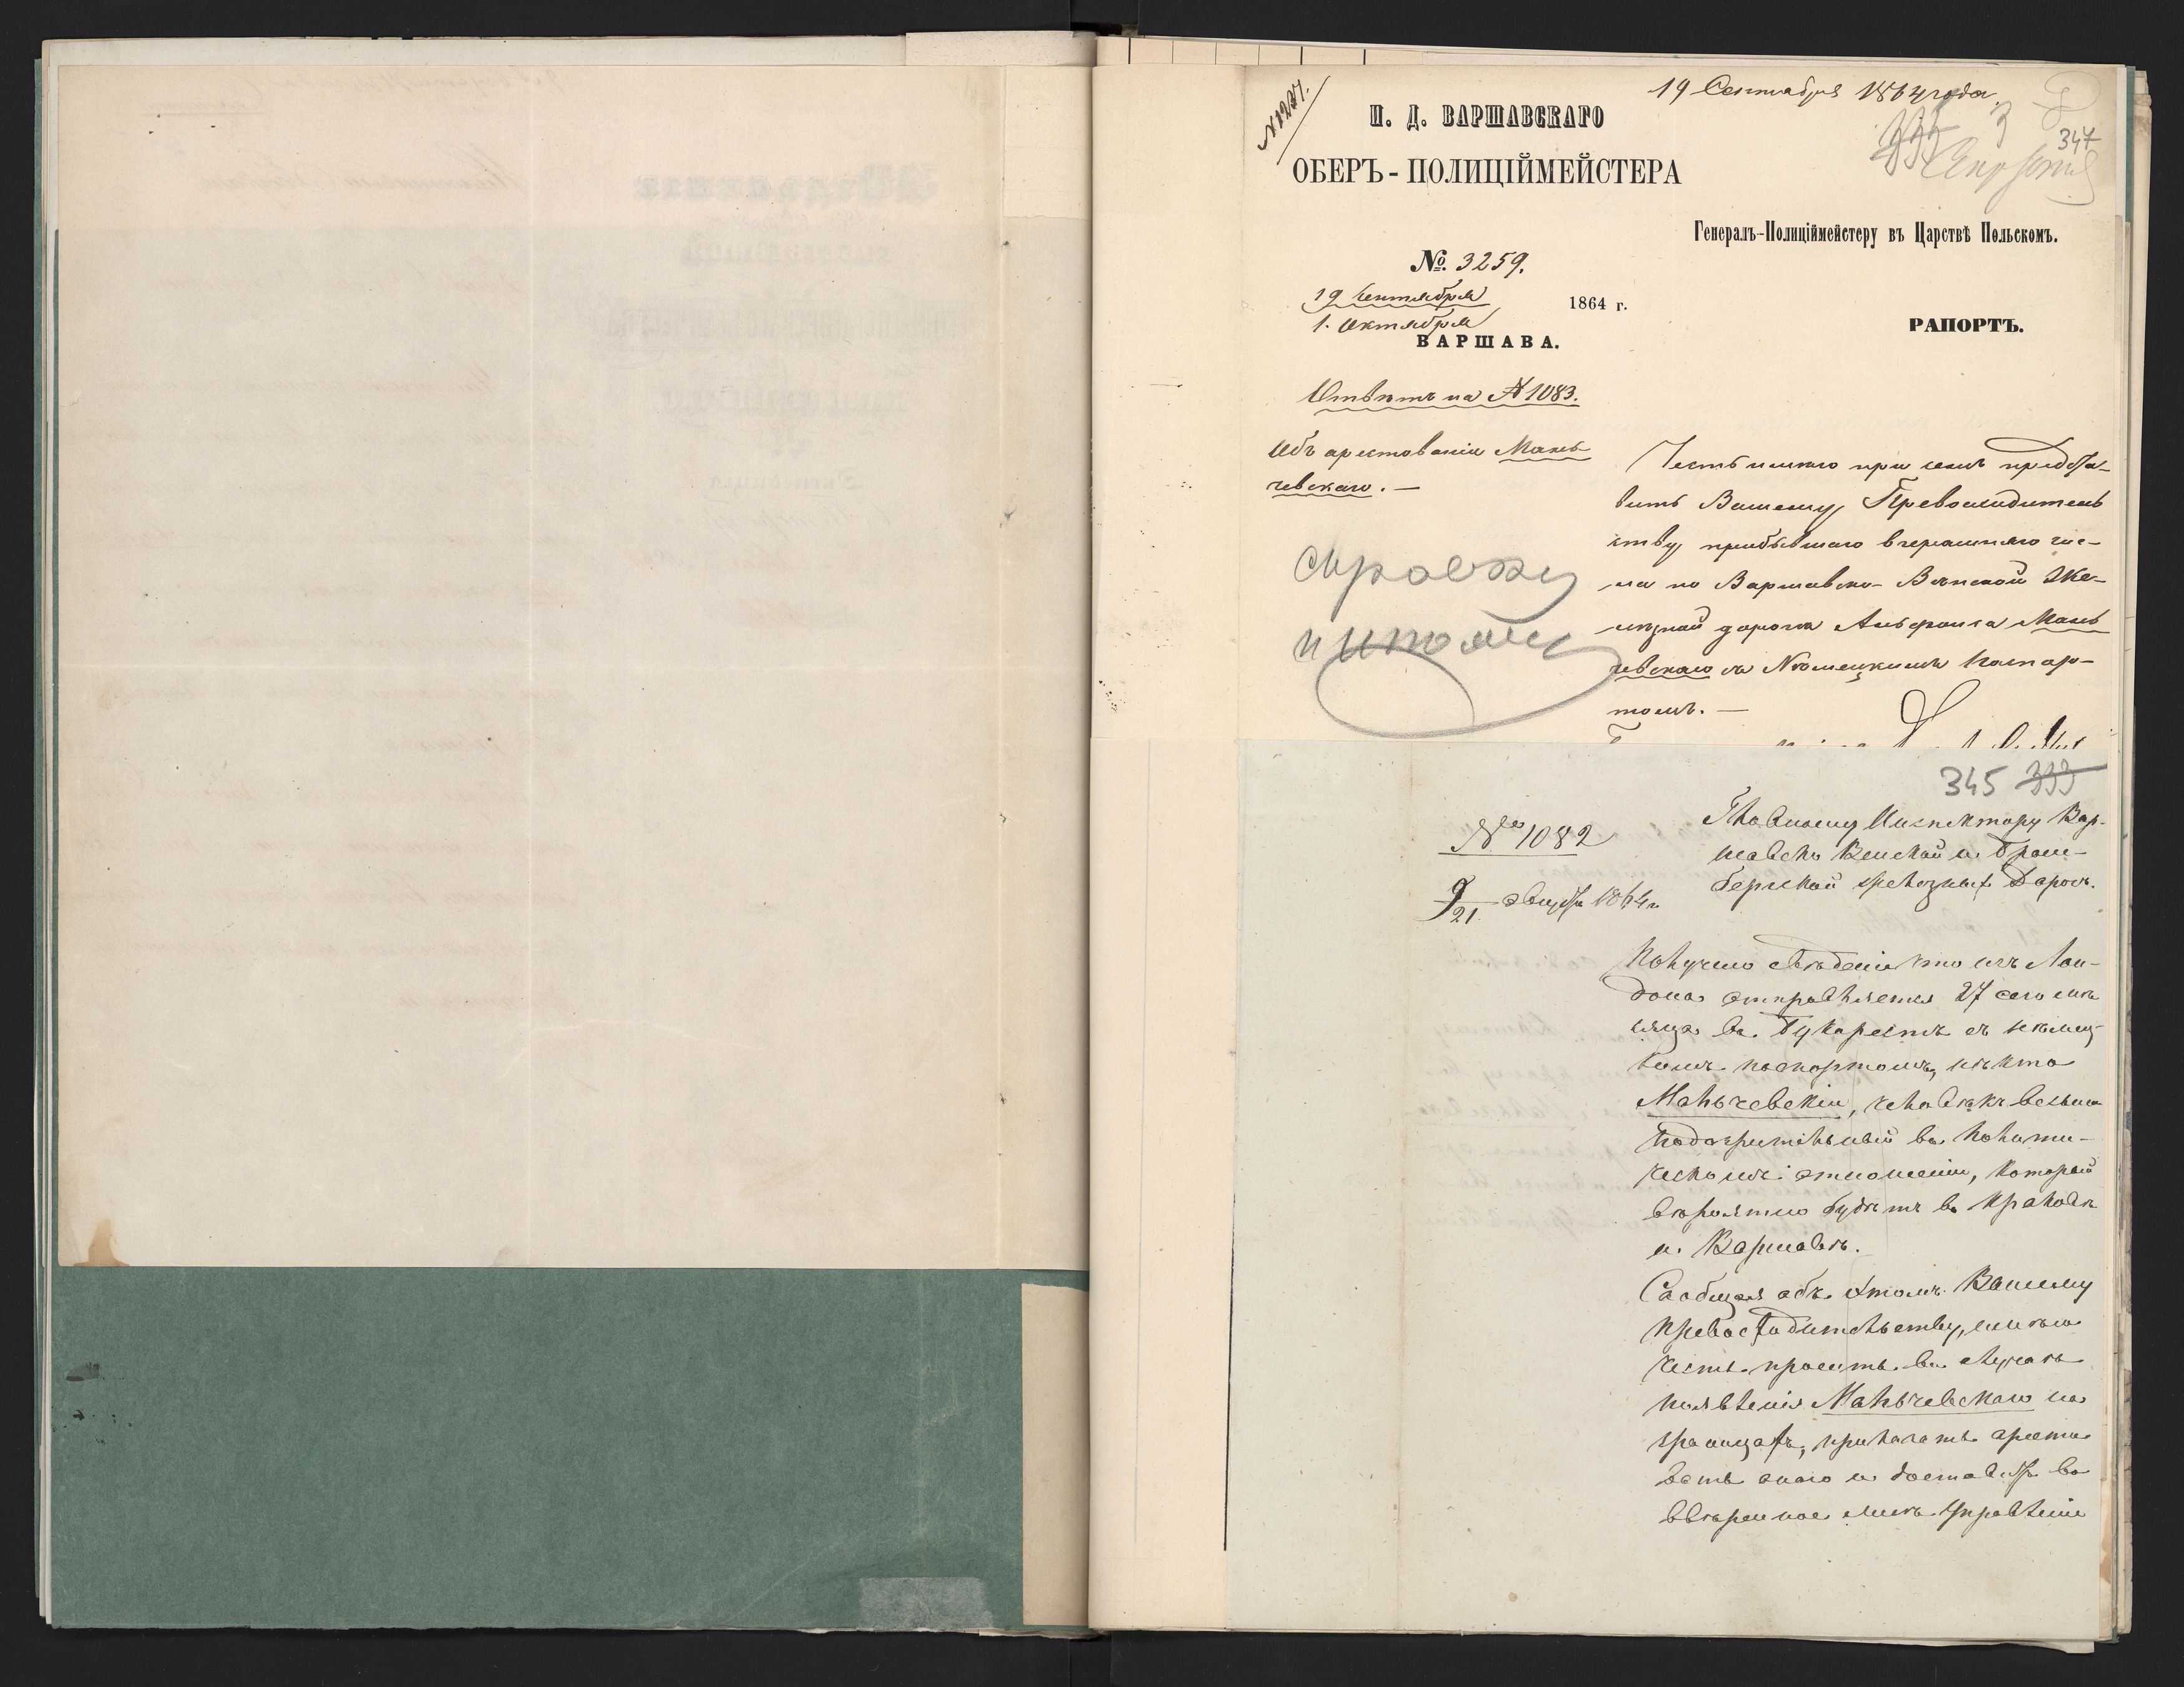 19 Сентября 1864 года.
№ 1227.
И. Д. ВАРШАВСКАГО
ОБЕРЪ-ПОЛИЦІЙМЕЙСТЕРА
333
3
347
Генералъ-Полиціймейстеру въ Царствѣ Польскомъ.
№. 3259.
19 Сентября
1. Октября
1864 г.
ВАРШАВА.
РАПОРТЪ.
Отвѣтъ на № 1083.
Объ арестованіи Маль-
чевскаго. —
Честь имѣю при семъ предста-
вить Вашему Превосходитель
ству, прибывшаго вчерашняго чис-
ла по Варшавско-Вѣнской Же-
лѣзной дорогѣ Альфонса Маль
чевскаго съ Нѣмецкимъ паспор-
томъ. —
345 333
№ 1082
9/21 1864 г.
Главному Инспектору Вар-
шавско Венской и Бром-
бергской желѣзныхъ Дорогъ.
Получено свѣдение что изъ Лон-
дона отправляется 27 сего мѣ
сяца въ Букарестъ съ немец-
кимъ паспортомъ, нѣкто
Мальчевскій, человѣкъ весьма
подозрительный въ полити-
ческомъ отношеніи, который
вѣроятно будетъ въ Краковѣ
и Варшавѣ.
Сообщая объ этомъ Вашему
превосходительству, имѣю
честь просить въ случаѣ
появленія Мальчевскаго на
границахъ, приказать аресто
вать онаго и доставить во
ввѣренное мнѣ Управленіе